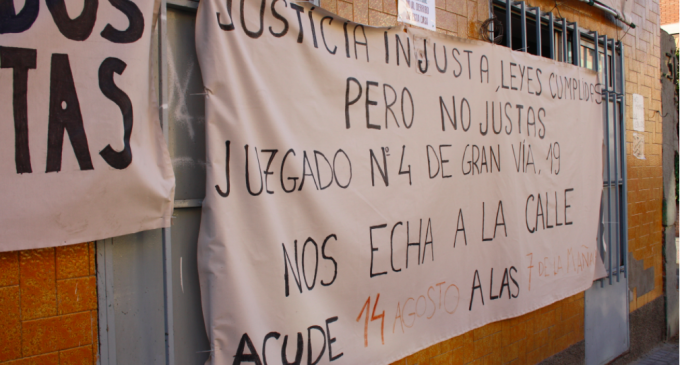 DOS
TAS
JUSTICIA INJUSTA, LEYES CUMPLIDES
PERO NO JÚSTAS
JUZGADO Nº 4 DE GRAN VÍA, 19
NOS ECHA A LA CALLE
ACUDE 14 AGOSTO A LAS 7 DE LA MAÑANA